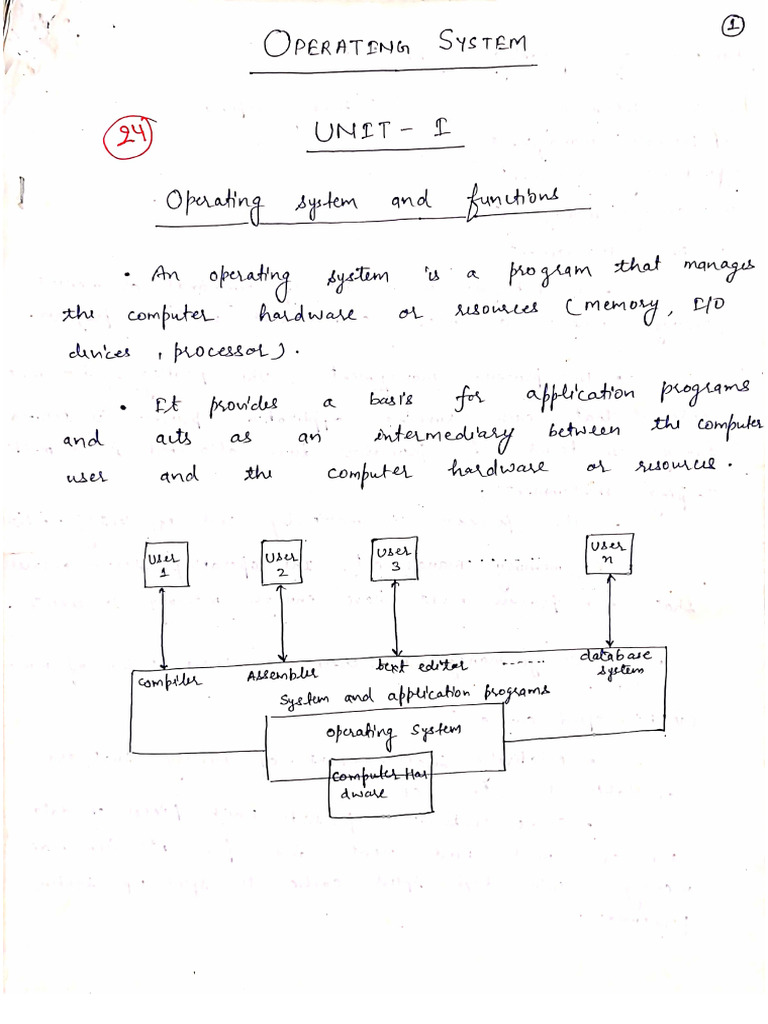 1
OPERATING SYSTEM
24
UNIT - I
Operating system and functions
• An operating system is a program that manages
the computer hardware or resources (memory, I/O
devices, processor).
• It provides a basis for application programs
and acts as an intermediary between the computer
user and the computer hardware or resources.
User 1 User 2 User 3 ........ User n
compiler Assembler text editor ...... database system
System and application programs
operating system
computer Har
dware